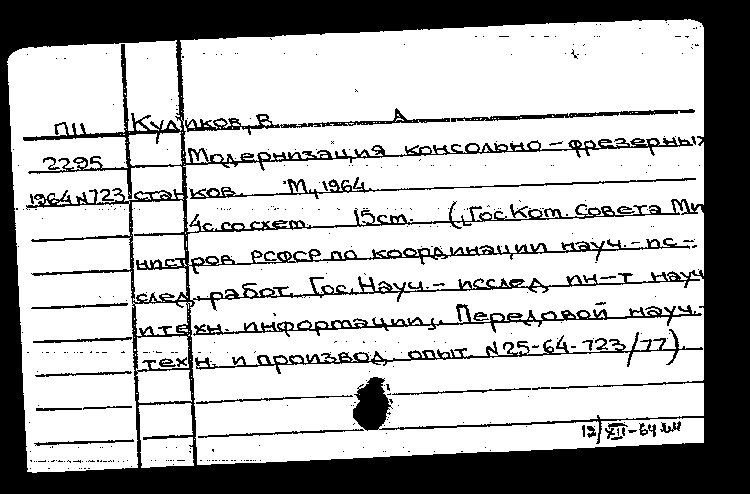 П11 Куликов, В А
2295 Модернизация консольно-фрезерных
1964 N 723 станков. М., 1964.
4с. со схем. 15см. (Гос. Ком. Совета Ми
нистров РСФСР по координации науч.-ис-
след. работ. Гос. Науч.-исслед. ин-т науч
и техн. информации. Передовой науч.-
техн. и производ. опыт. N25-64-723/77).
12/XII-64